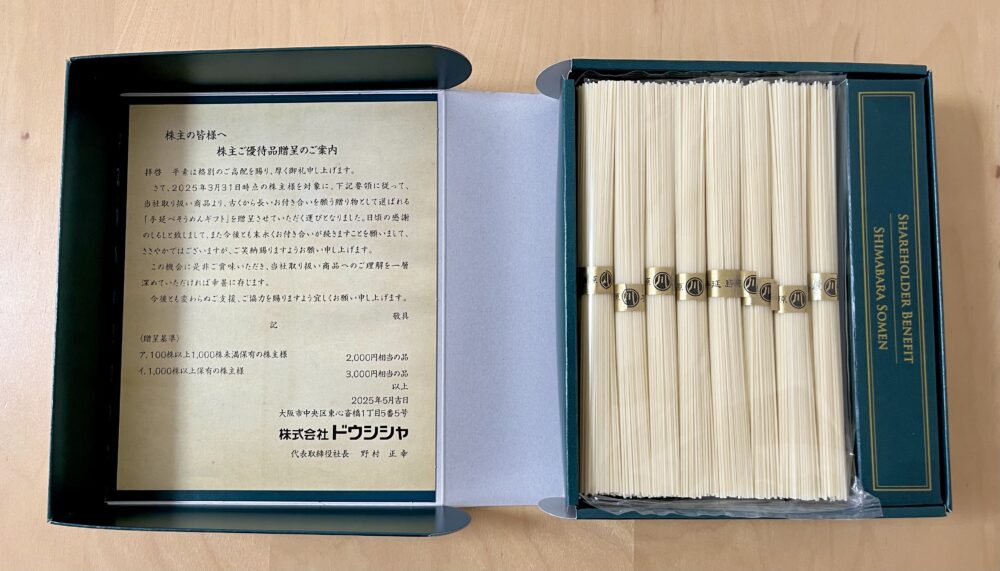 株主の皆様へ
株主ご優待品贈呈のご案内
拝啓　平素は格別のご高配を賜り、厚く御礼申し上げます。
さて、2025年3月31日時点の株主様を対象に、下記要領に従って、
当社取り扱い商品より、古くから長いお付き合いを願う贈り物として選ばれる
「手延べそうめんギフト」を贈呈させていただく運びとなりました。日頃の感謝
のしるしと致しまして、また今後とも末永くお付き合いが続きますことを願いまして、
ささやかではございますが、ご笑納賜りますようお願い申し上げます。
この機会に是非ご賞味いただき、当社取り扱い商品へのご理解を一層
深めていただければ幸甚に存じます。
今後とも変わらぬご支援、ご協力を賜りますよう宜しくお願い申し上げます。
敬具
記
（贈呈基準）
ア.100株以上1,000株未満保有の株主様　2,000円相当の品
イ.1,000株以上保有の株主様　3,000円相当の品
以上
2025年5月吉日
大阪市中央区東心斎橋1丁目5番5号
株式会社ドウシシャ
代表取締役社長　野村　正幸
川
川
川
川
川
川
川
原
川
SHAREHOLDER BENEFIT
SHIMABARA SOMEN